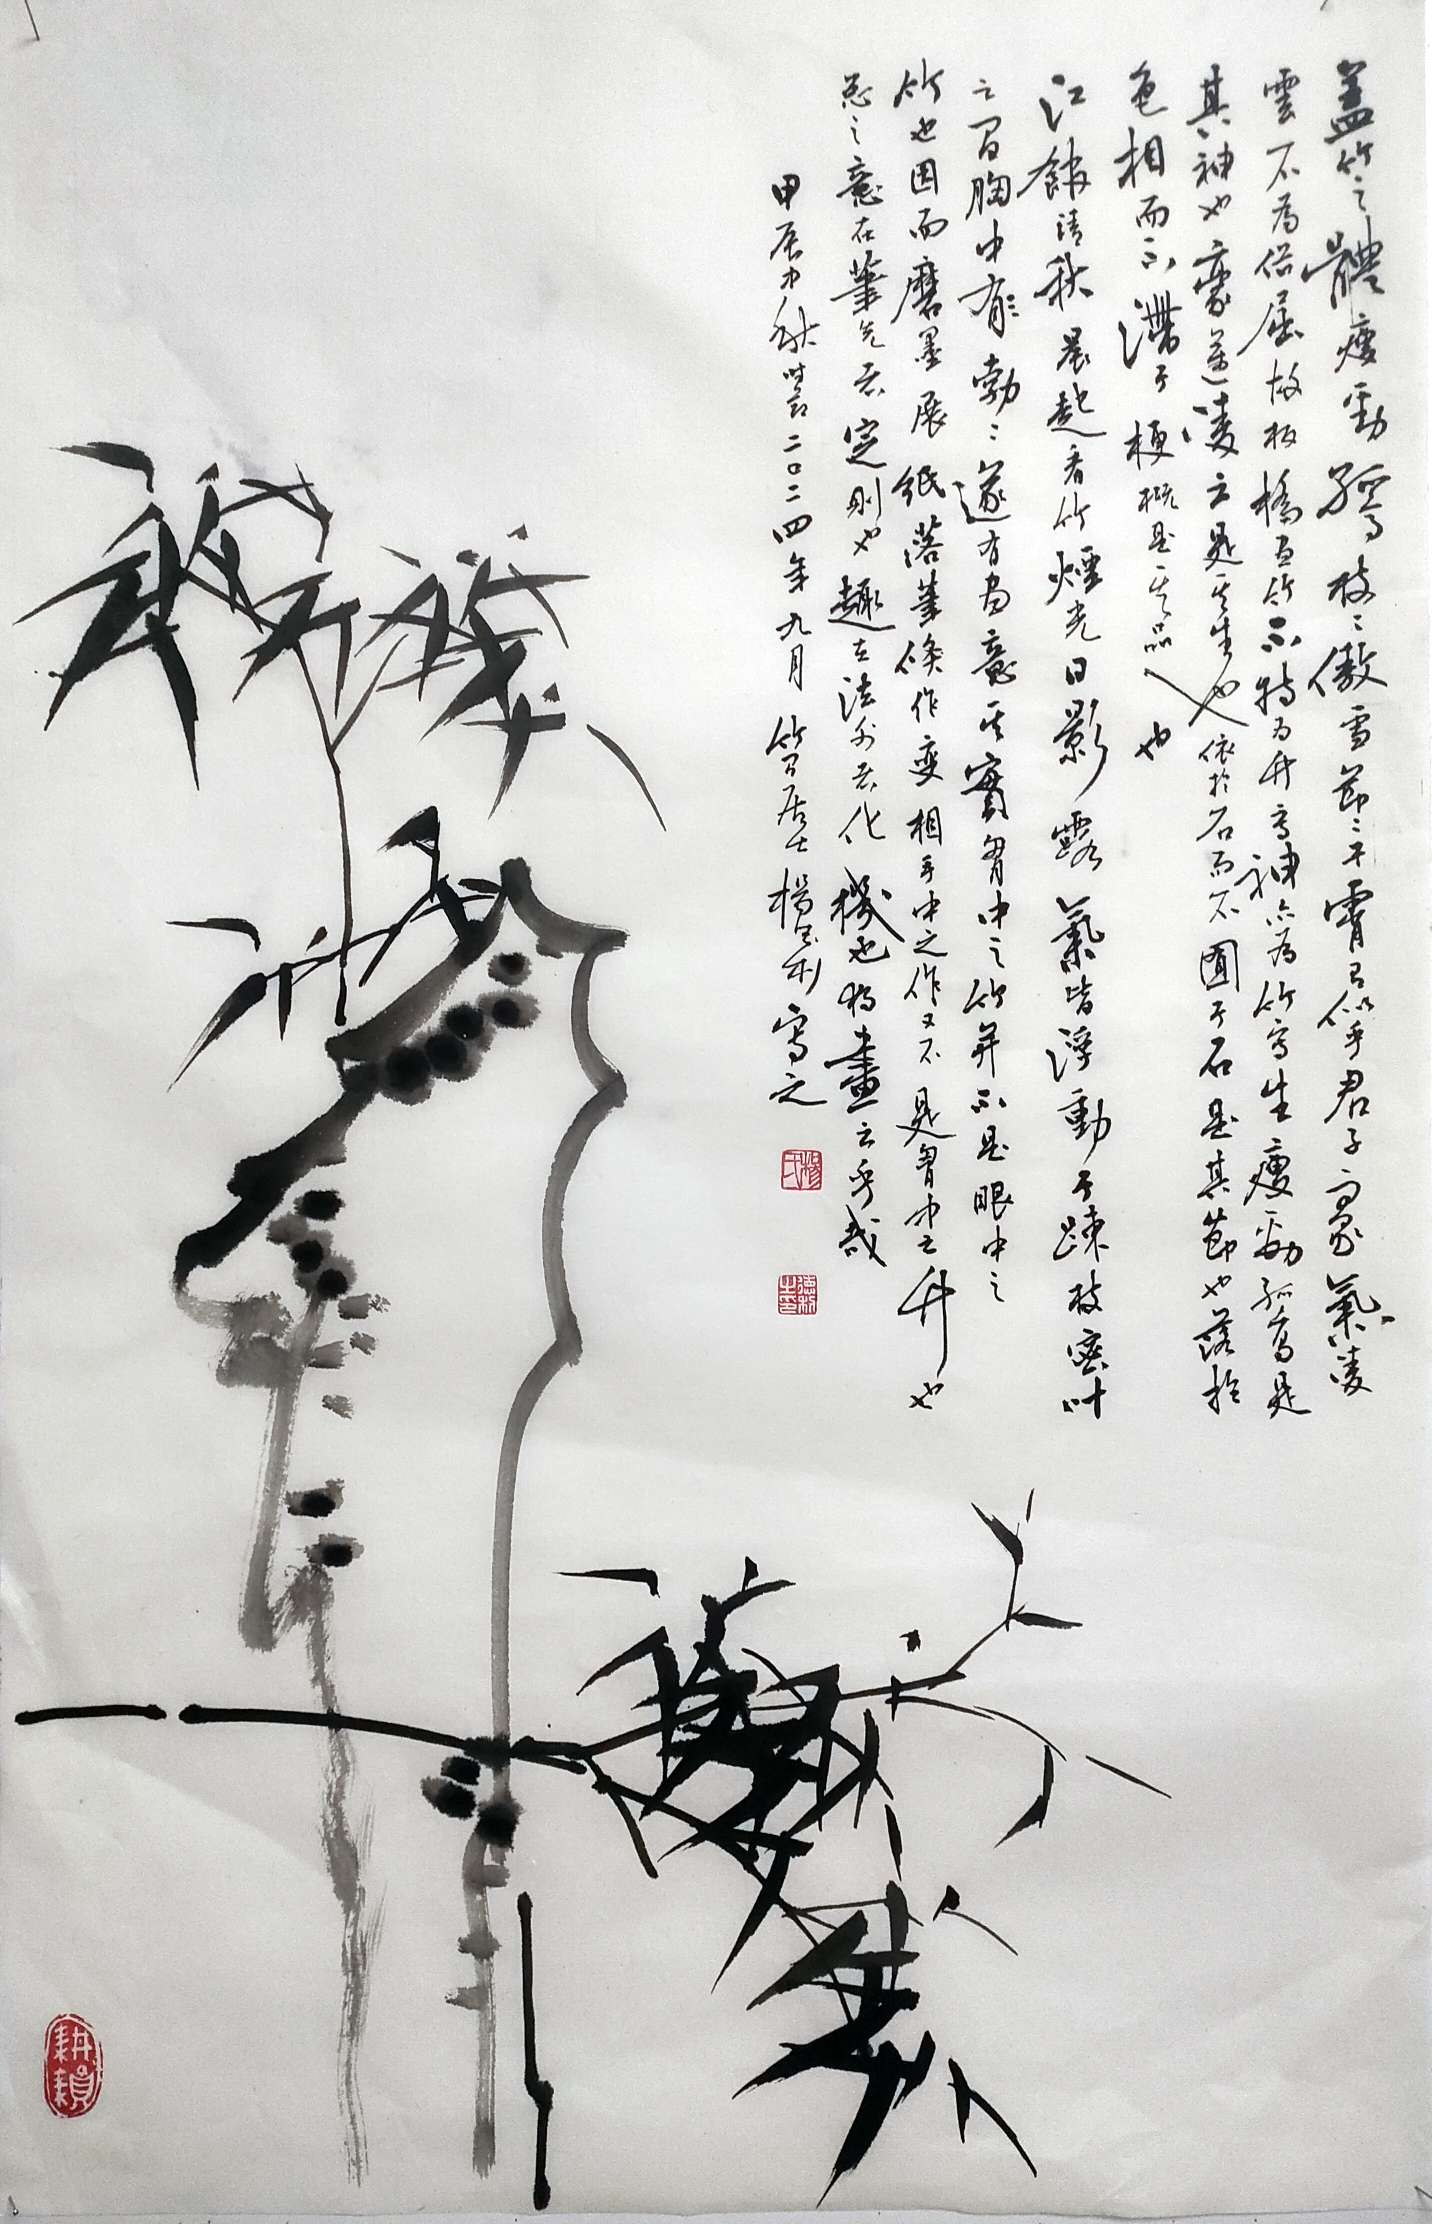 盖竹之體瘦勁孤高枝二傲雪節二干霄有似乎君子豪氣凌
雲不為俗屈故板橋画竹不特為竹寫神亦為竹寫生瘦勁孤高是
其神也豪邁凌云是其生也依於石而不囿于石是其節也落於
色相而不滯于梗概是其品也
江館清秋晨起看竹煙光日影露氣皆浮動于疎枝密叶
之间胸中有勃二遂有畵意其實胷中之竹并不是眼中之
竹也因而磨墨展紙落筆倏作变相手中之作又不是胷中之竹也
总之意在筆先者定则也趣在法外者化機也独畫云乎哉
甲辰中秋时节二〇二四年九月 竹石居士楊德利寫之
楊氏
德利之印
耕耕